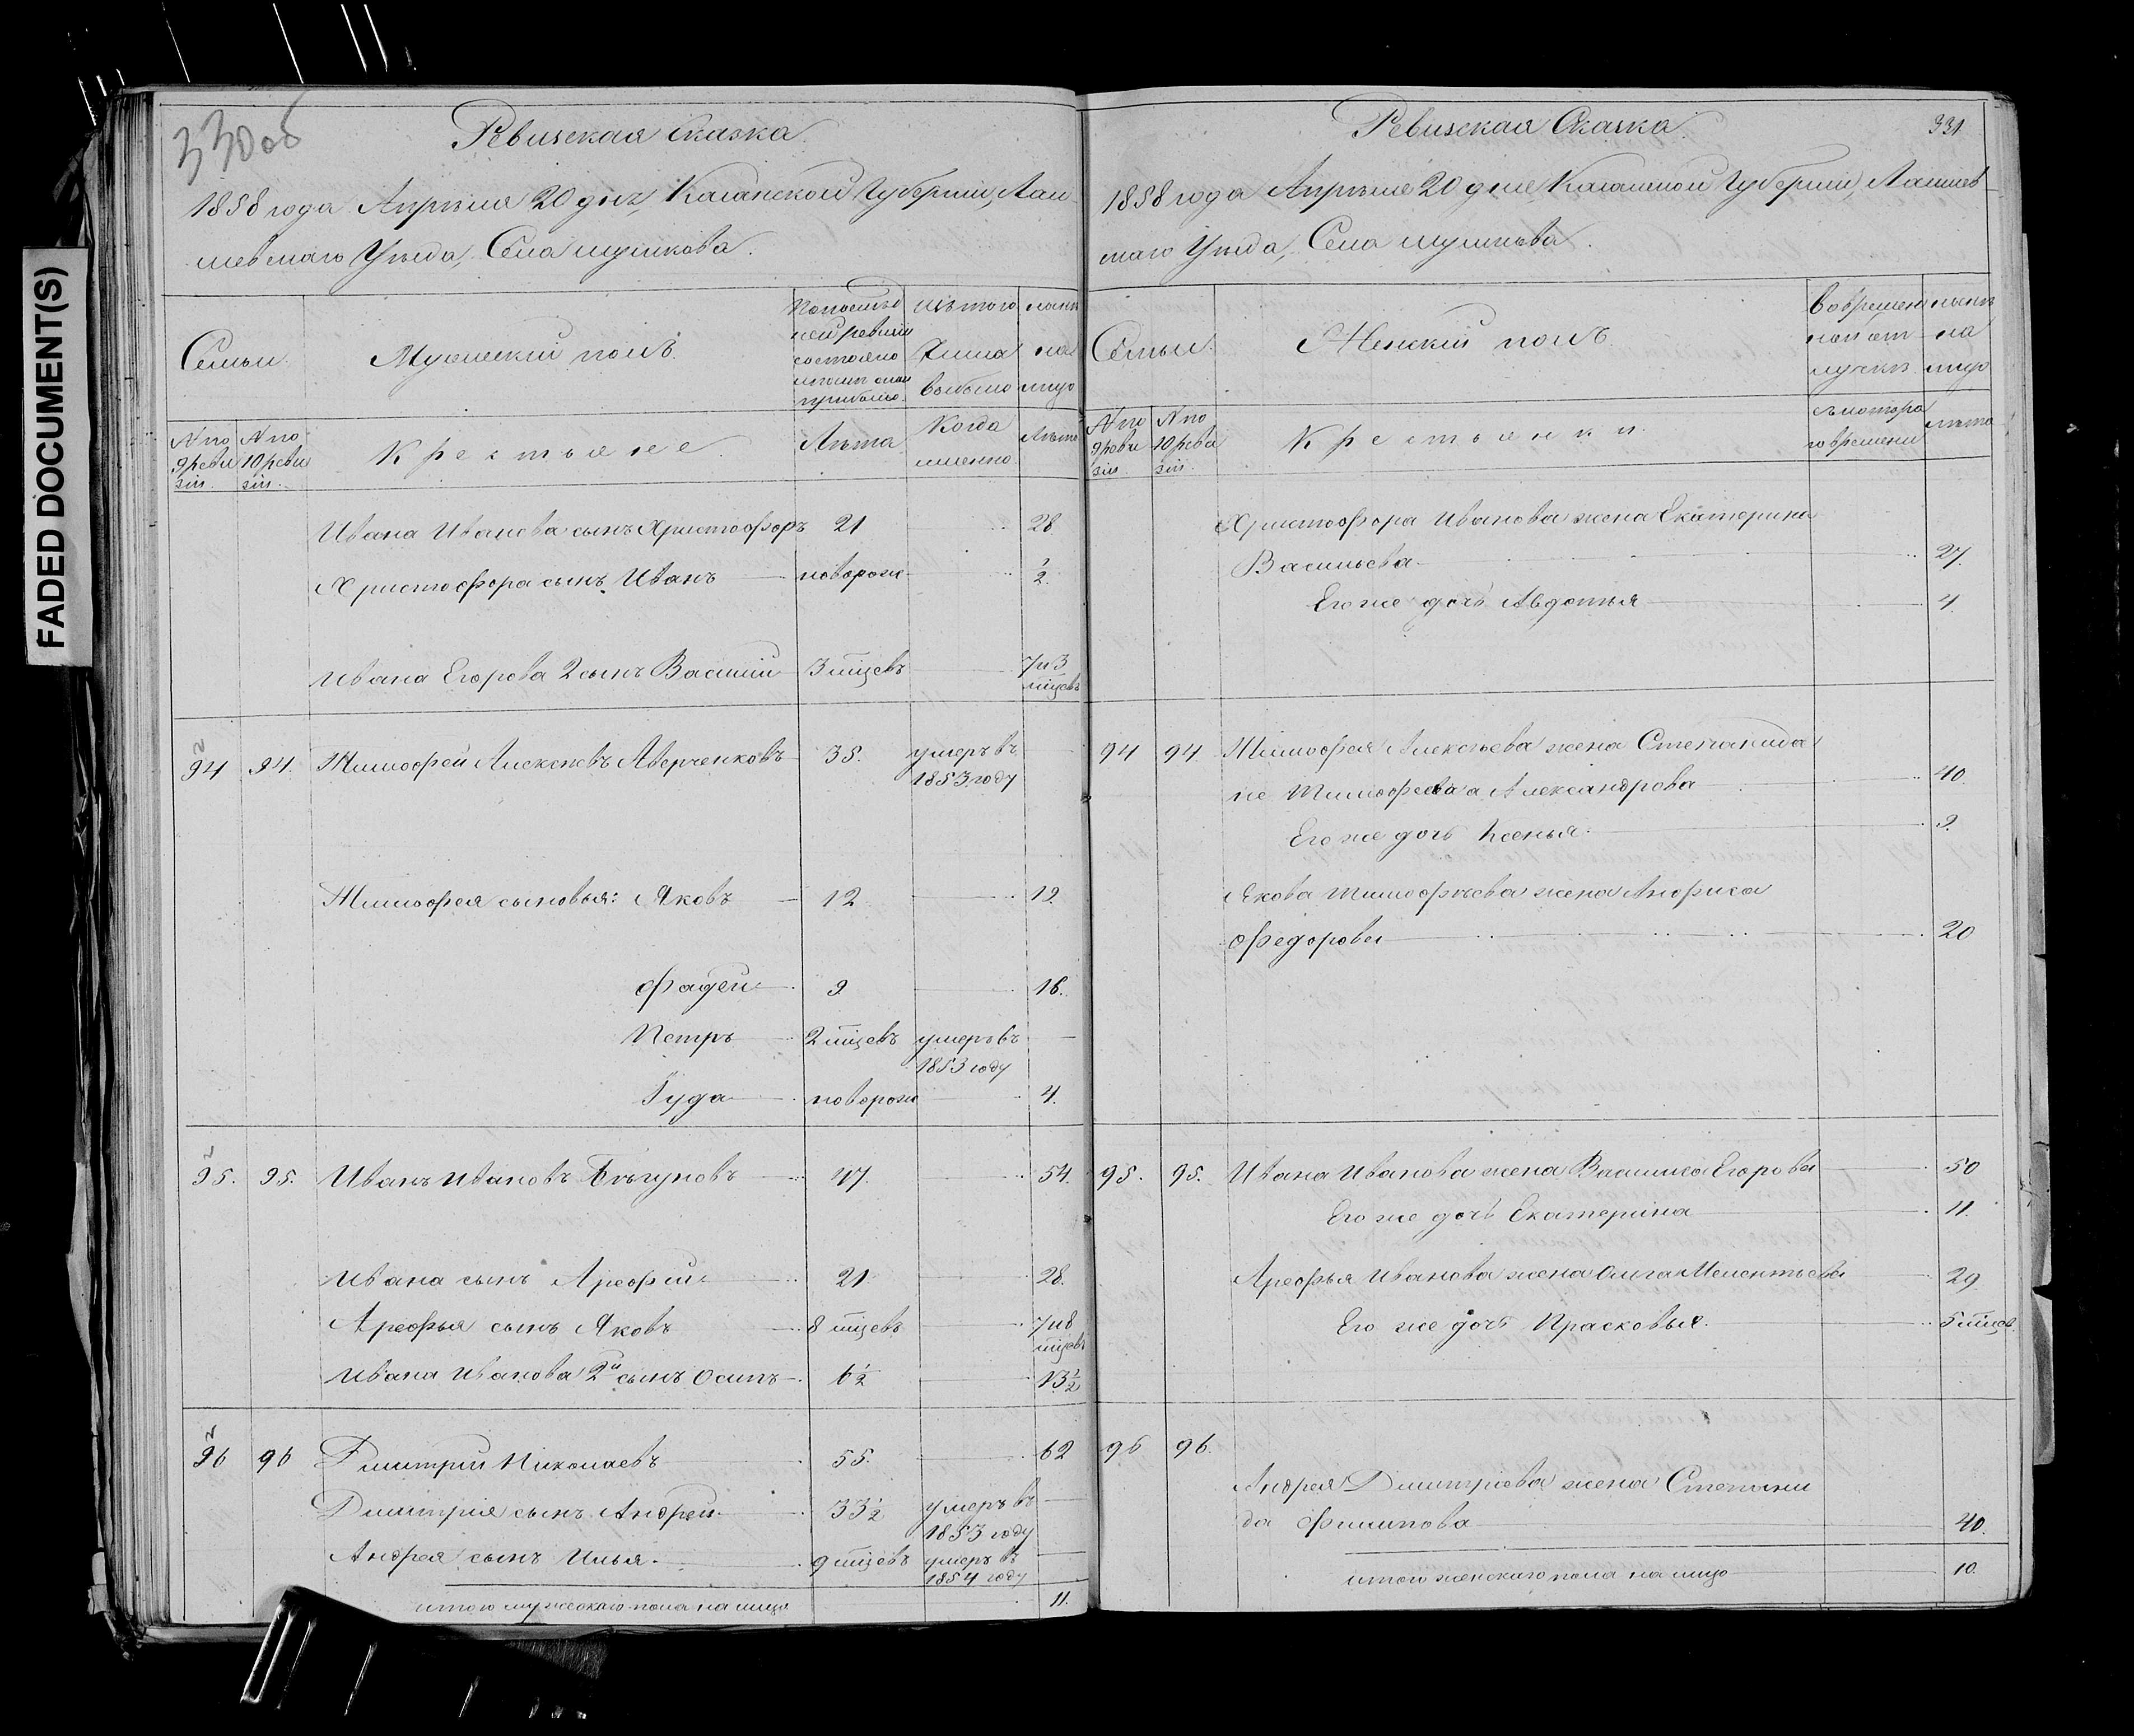 FADED DOCUMENT(S)
330об
Ревизская Сказка.
1858 года Апрѣля 20 дня, Казанской Губерніи, Лаи-
шевскаго Уѣзда, Села шумкова.
Семьи.
Мужескій полъ.
По послѣд
ней ревизіи
состояло
и послѣ оной
прибыло.
Изъ того
числа
выбыло
нынѣ
на
лицо
N по
9 реви
зіи.
N по
10 реви
зіи.
Крестьяне.
Лѣта
Когда
именно.
Лѣта
Ивана Иванова сынъ Христофоръ 21 28.
Христофора сынъ Иванъ новорож. ½.
Ивана Егорова 2 сынъ Василій 3 мѣцевъ 7 и 3
мѣцевъ
94 94. Тимофей Алексѣевъ Аверченковъ 35. умеръ въ
1853 году
Тимофея сыновья: Яковъ 12 19.
Фадей 9 16.
Петръ 2 мѣцевъ умеръ въ
1853 году
Іуда новорож 4.
95. 95. Иванъ Ивановъ Бѣгуновъ 47. 54.
Ивана сынъ Арефій 21. 28.
Арефья сынъ Яковъ 8 мѣцевъ 7 и 8
мѣцевъ
Ивана Иванова 2й сынъ Осипъ 6½ 13½
96 96 Дмитрій Николаевъ 55. 62
Дмитрія сынъ Андрей 33½ умеръ въ
1853 году
Андрея сынъ Илья. 9 мѣцевъ умеръ въ
1854 году
итого мужескаго пола на лицо 11.
Ревизская Сказка.
331
1858 года Апрѣля 20 дня, Казанской Губерніи, Лаишев-
скаго Уѣзда, Села шумкова.
Семьи.
Женскій полъ.
Во времен
ной от
лучкѣ
нынѣ
на
лицо
N по
9 реви
зіи.
N по
10 реви
зіи.
Крестьянки.
съ котора
го времени
лѣта
Христофора Иванова жена Екатерина
Васильева 27.
Его же дочь Авдотья 4.
94 94 Тимофея Алексѣева жена Степанида
не Тимофеева а Александрова 40.
Его же дочь Ксенья. 9.
Якова Тимофѣева жена Анфиса
Федорова 20
95. 95. Ивана Иванова жена Василиса Егорова 50
Его же дочь Екатерина 11.
Арефья Иванова жена Ольга Мелентьева 29
Его же дочь Прасковья. 5 мѣцев.
96 96.
Андрея Дмитріева жена Степани
да Филипова 40.
итого женскаго пола на лицо 10.